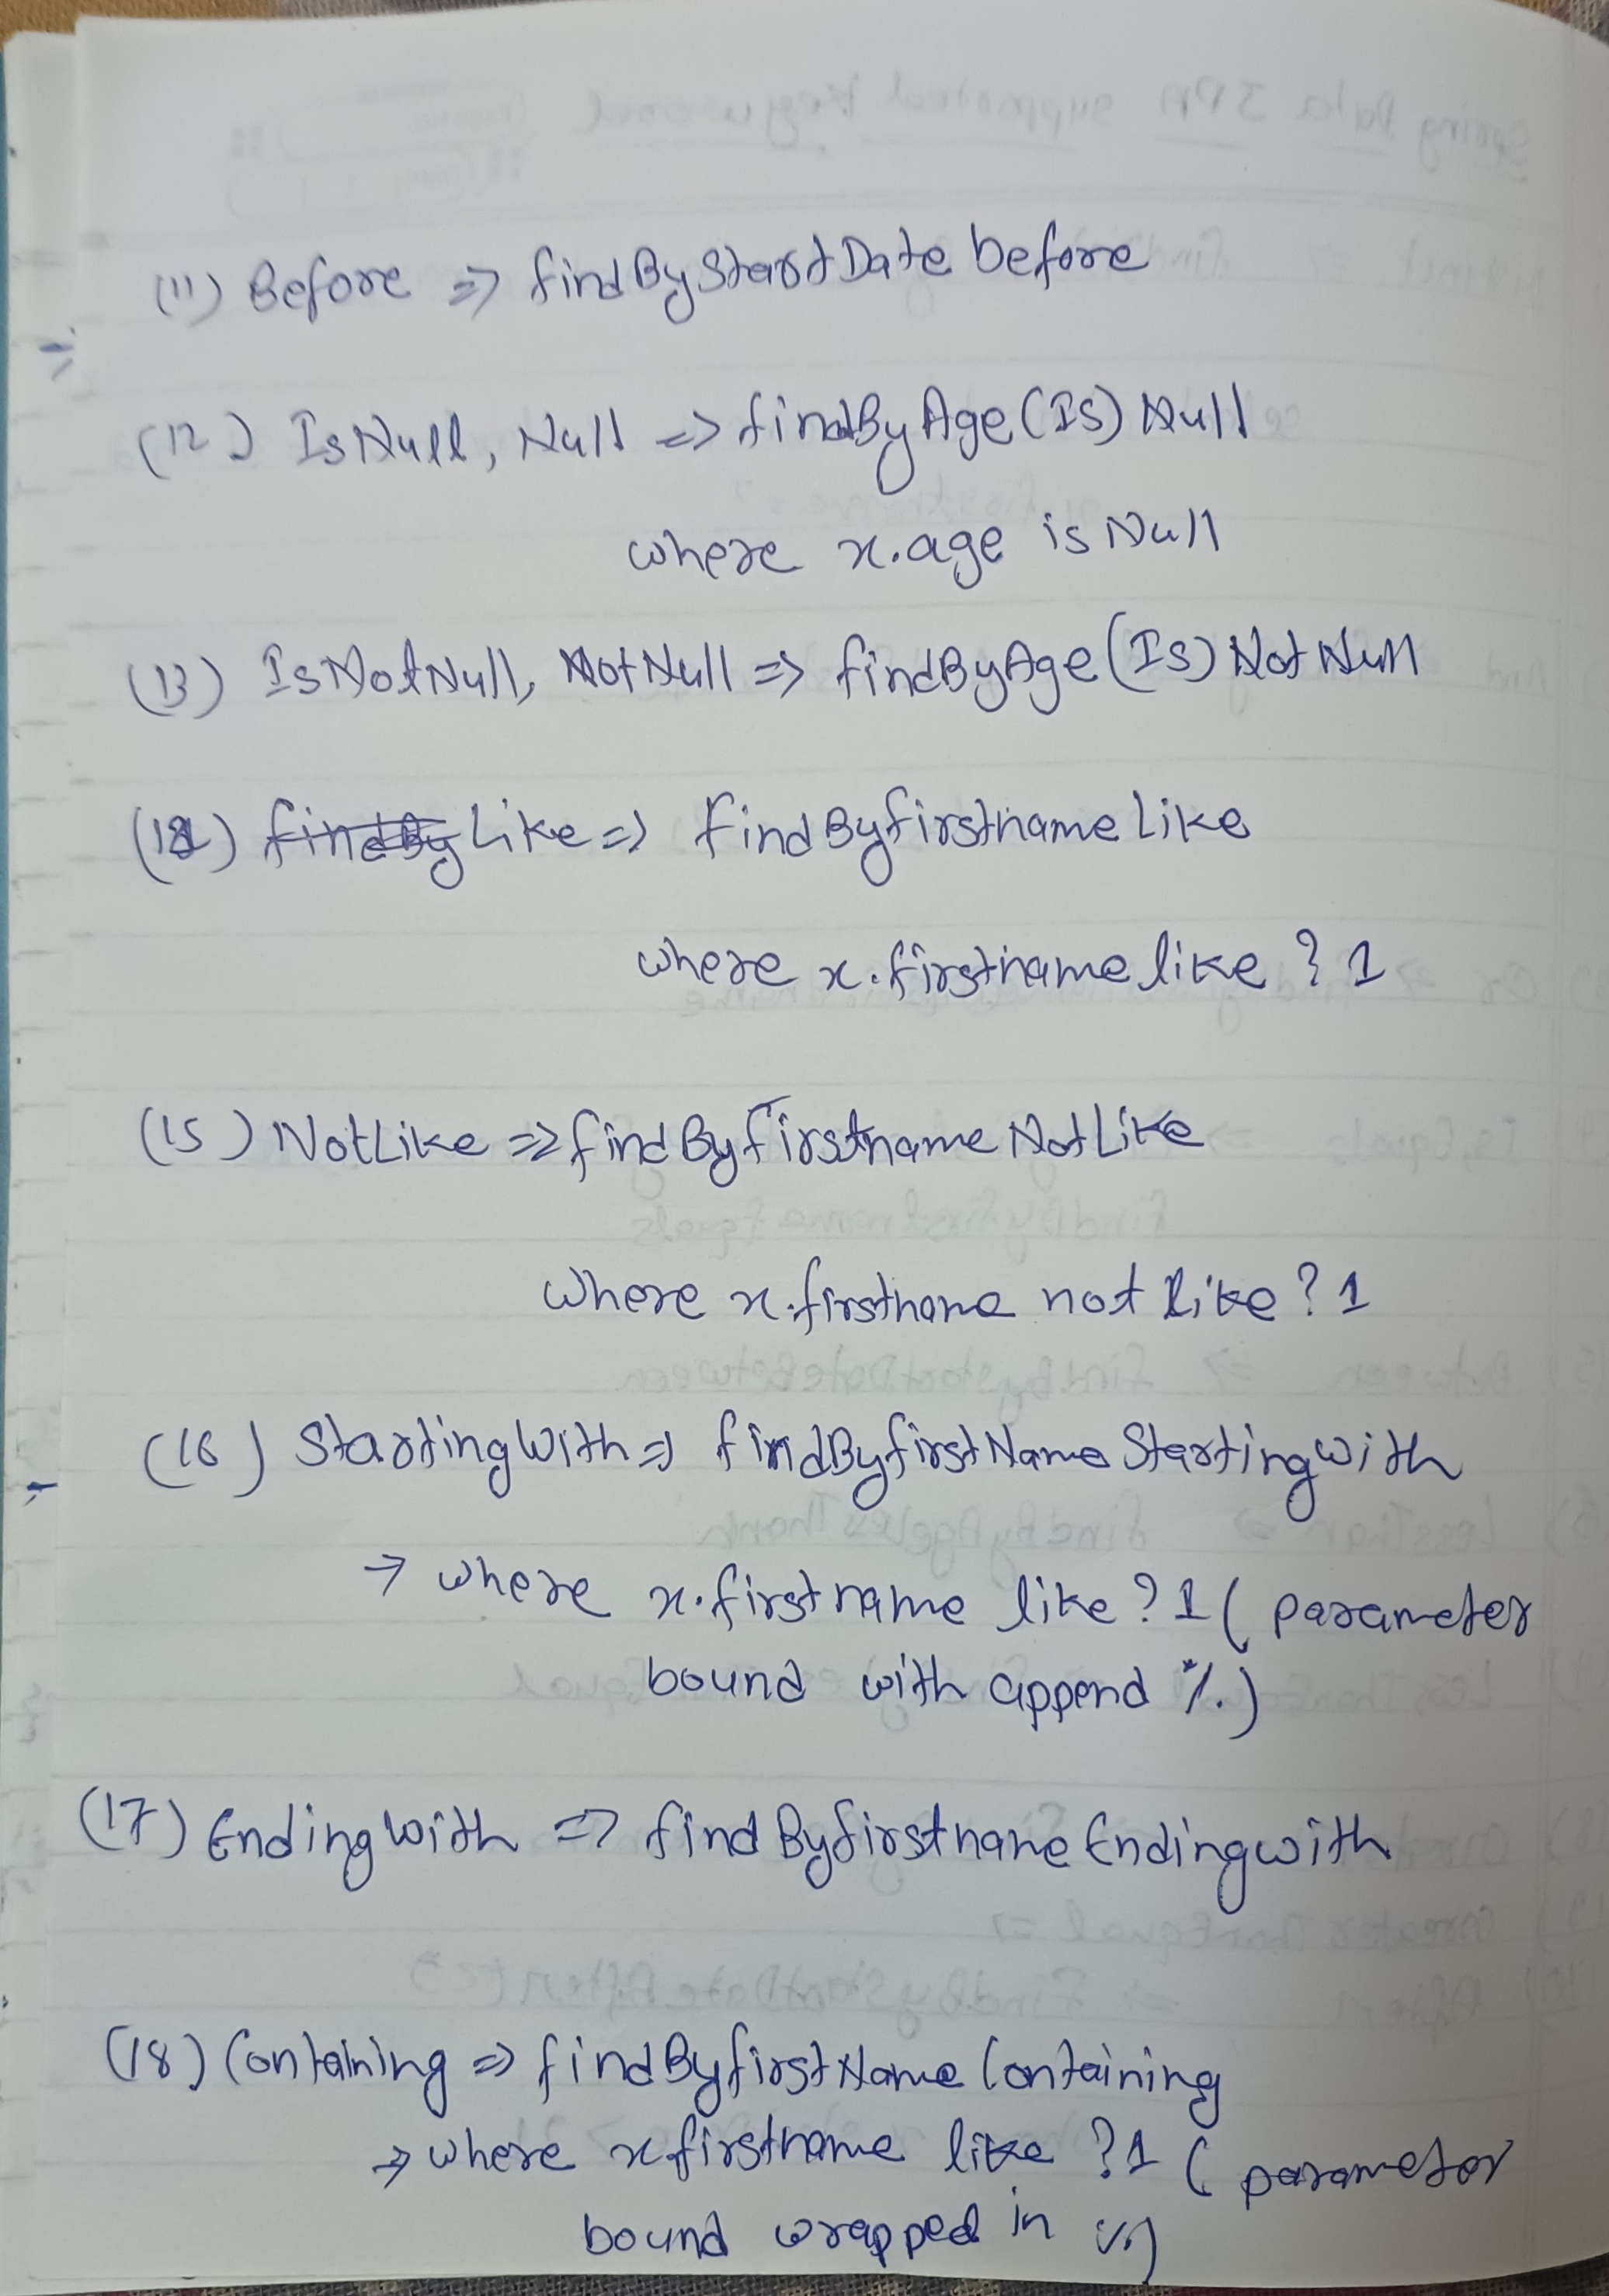 (11) Before => findByStartDate before
(12) IsNull, Null => findByAge(Is) Null
where x.age is Null
(13) IsNotNull, NotNull => findByAge(Is) Not Null
Like => findByfirstname like
where x.firstname like ? 1
(15) NotLike => findByfirstname NotLike
where x.firstname not like ? 1
(16) StartingWith => findByfirstName Startingwith
→ where x.firstname like ? 1 ( parameter
bound with append %)
(17) EndingWith => findByfirstname Endingwith
(18) Containing => findByfirstName Containing
⇒ where x firstname like ?1 ( parameter
bound wrapped in %)